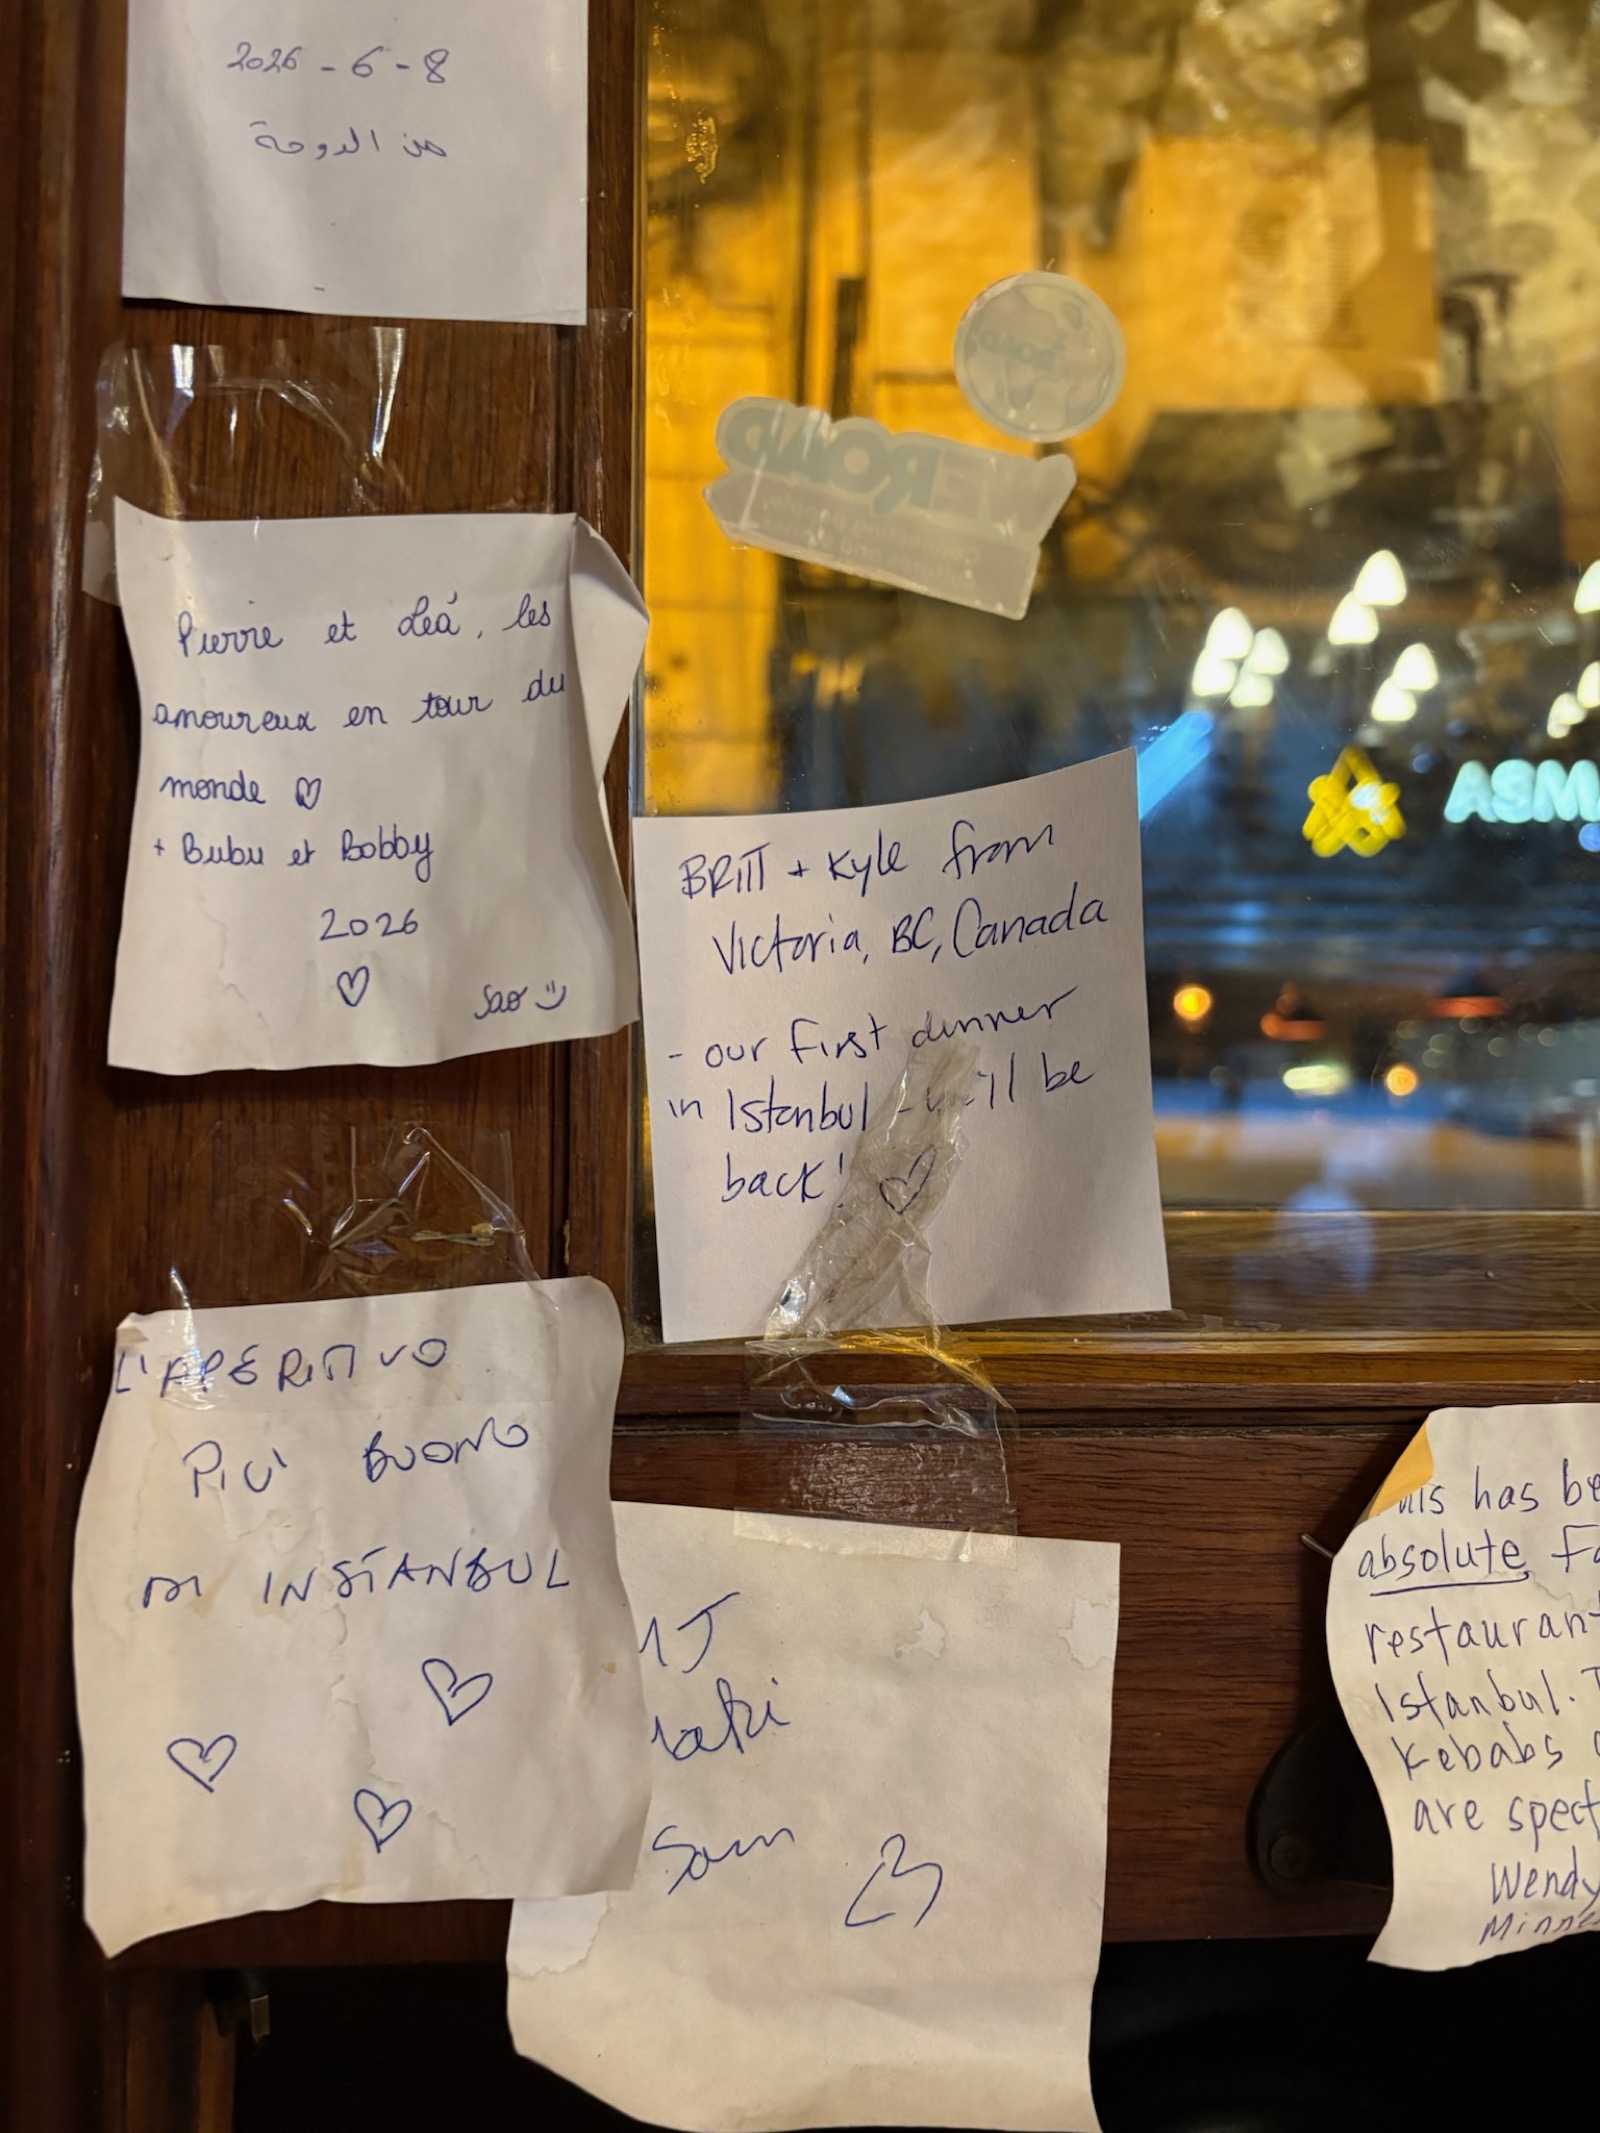 2026 - 6 - 8
من الدوحة
WEROAD
Pierre et Léa, les
amoureux en tour du
monde ♡
+ Bubu et Bobby
2026
♡
Sao
BRITT + Kyle from
Victoria, BC, Canada
- our first dinner
in Istanbul - we'll be
back! ♡
L'APERITIVO
PIU' BUONO
DI INSTANBUL
♡
♡
♡
Sam
has be
absolute
restaurant
Istanbul.
Kebabs
are spect
Wendy
Minne